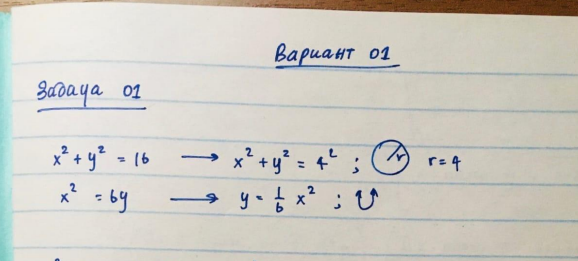 Вариант 01
Задача 01
x² + y² = 16 → x² + y² = 4² ; r r = 4
x² = 6y → y = 1/6 x² ;